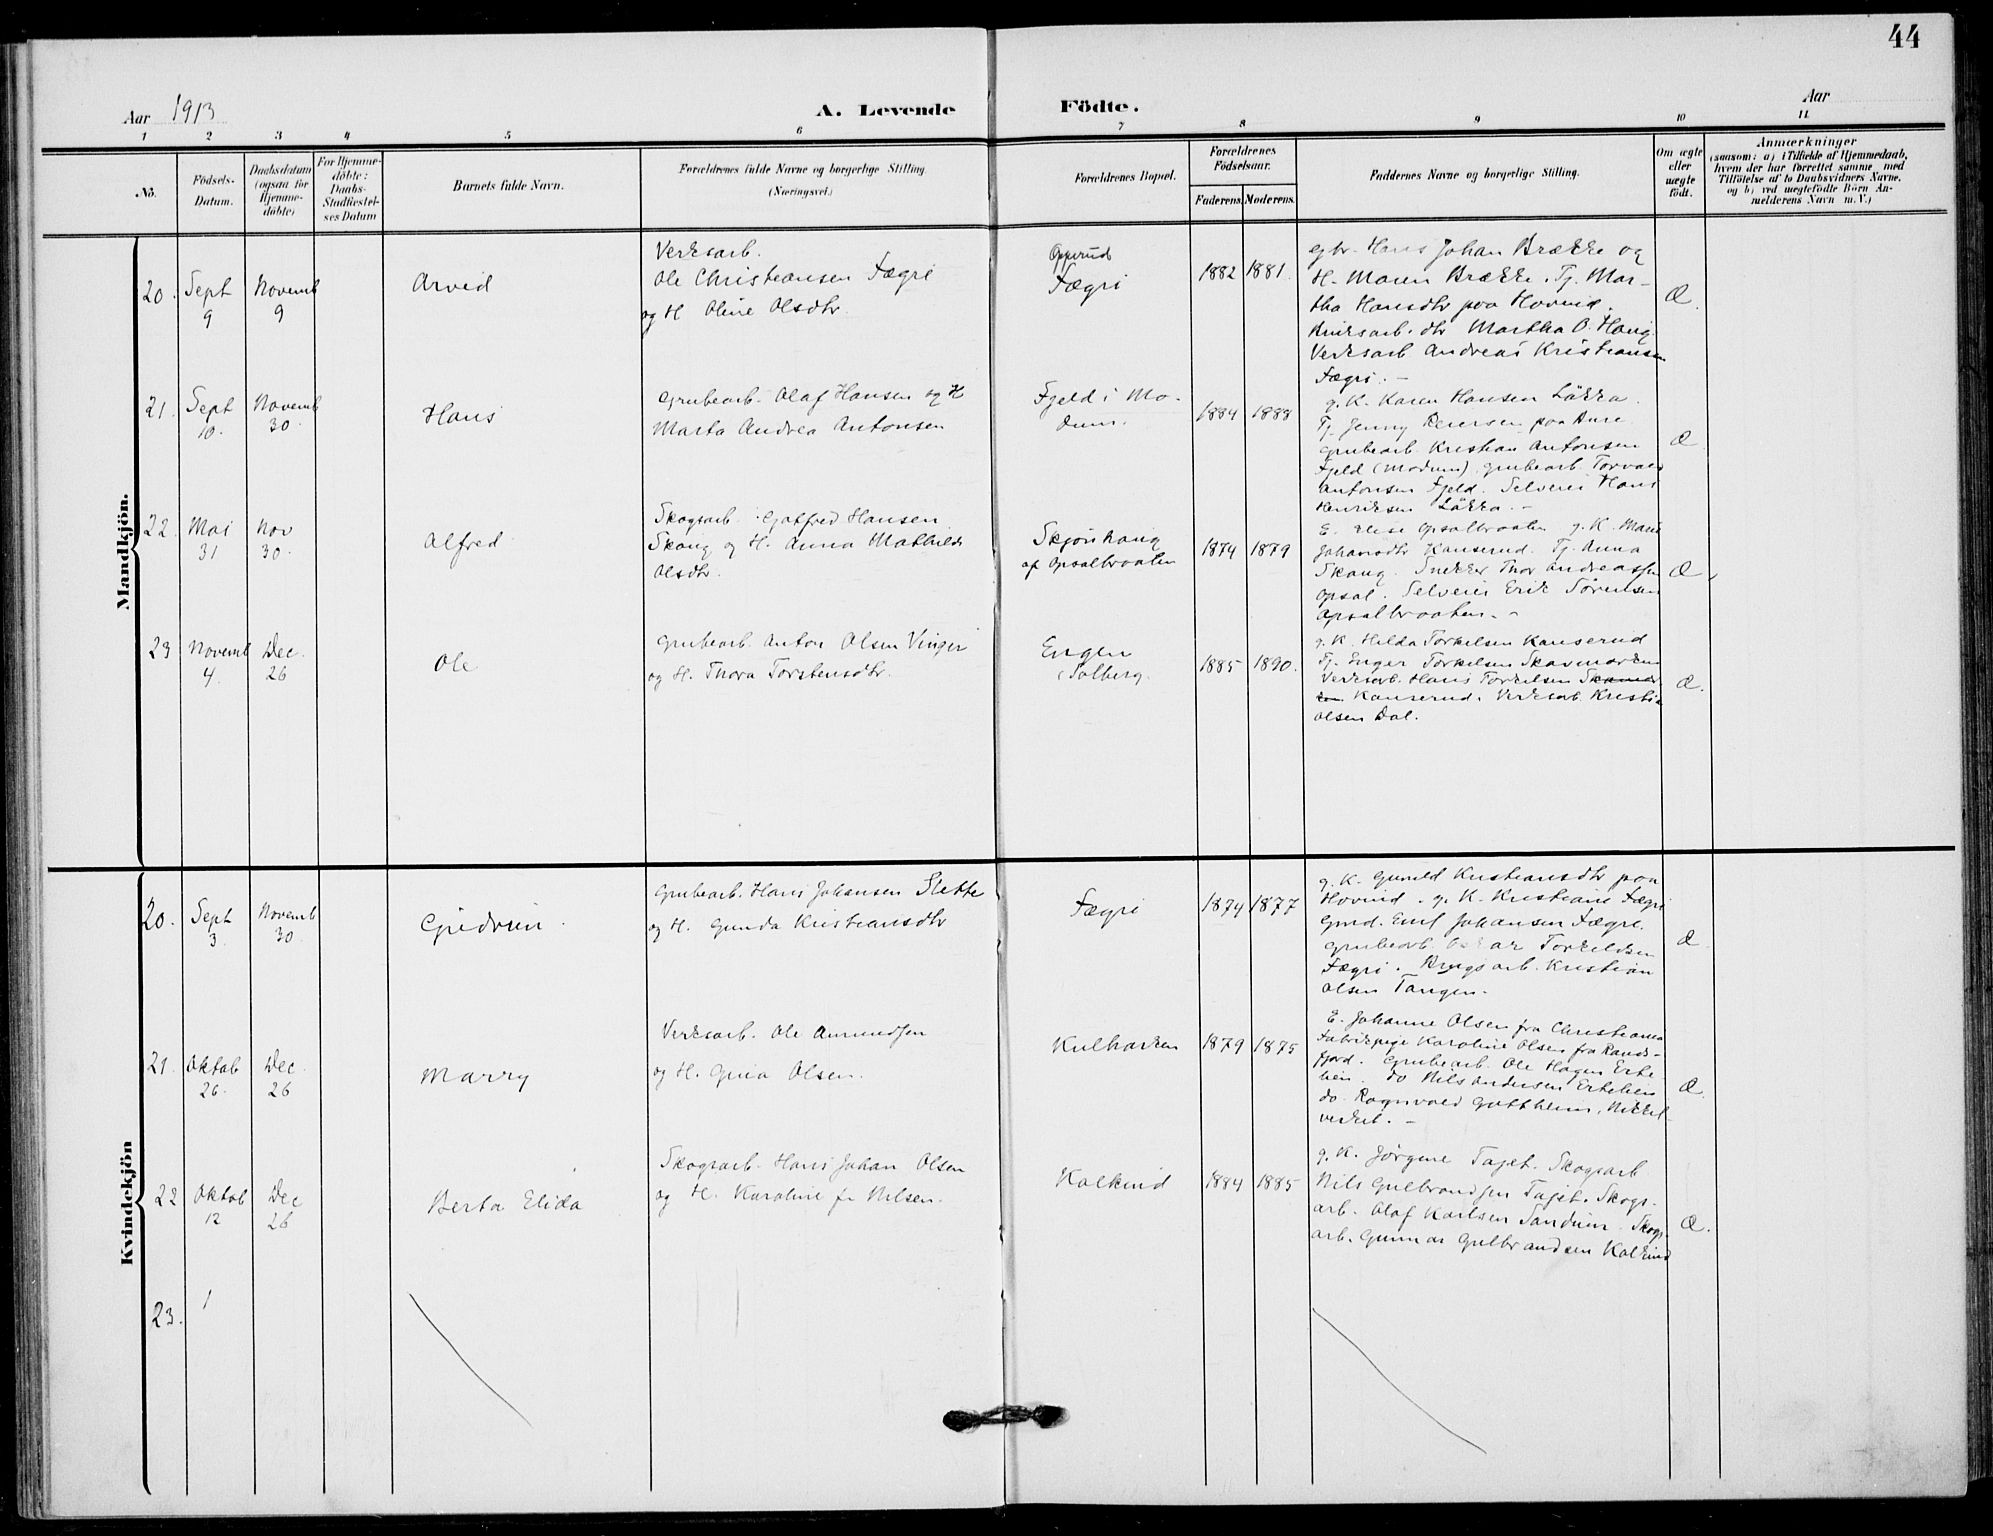 44
Aar 1913
A. Levende
Födte.
Aar
1 2 3 4 5 6 7 8 9 10 11
No.
Födsels-
Datum.
Daabsdatum
(ogsaa for
Hjemme-
döbte)
For Hjemme-
döbte:
Daabs-
Stadfæstel-
ses Datum
Barnets fulde Navn.
Forældrenes fulde Navne og borgerlige Stilling
(Næringsvei.)
Forældrenes Bopæl.
Forældrenes
Födselsaar.
Faderens. Moderens.
Faddernes Navne og borgerlige Stilling.
Om ægte
eller
uægte
födt.
Anmærkninger
(saasom: a) i Tilfælde af Hjemmedaab,
hvem der har forrettet samme, med
Tilföielse af to Daabsvidners Navne,
og b) ved uægtefödte Börn An-
melderens Navn m. V.)
Mandkjön.
20. Sept
9
Novemb
9
Arvid
Verksarb.
Ole Christiansen Fægri
og H. Oline Olsdtr.
Opperud
Fægri
1882 1881.
gbr. Hans Johan Brække og
H. Maren Brække. Tj. Mar-
tha Hansdtr paa Hovind.
Bruksarb. dtr Martha O. Haug
Verksarb Andreas Kristiansen
Fægri. -
Æ.
21. Sept
10.
Novemb
30.
Hans
Grubearb. Olaf Hansen og H
Marta Andrea Antonsen
Fjeld i Mo-
dum.
1884 1888
g. K. Karen Hansen Løkka.
Tj. Jenny Petersen paa Bure
Grubearb. Kristian Antonsen
Fjeld (Modum). grubearb. Torvald
Antonsen Fjeld. Selveier Hans
Henriksen Løkka. -
Æ
22. Mai
31
Nov
30.
Alfred
Skogsarb. Gotfred Hansen
Skaug og H. Anna Mathilde
Olsdtr.
Skjønhaug
af Opsalbraaten
1874 1879
E. Elise Opsalbraaten g. K. Marie
Johansdtr Kanserud. Tj. Anna
Skaug. Snekker Thor Andreassen
Opsal. Selveier Erik Sørensen
Opsalbraaten. -
Æ
23 Novemb
4.
Dec.
26
Ole
Grubearb. Anton Olsen Vinger
og H. Thora Torstensdtr.
Engen
i Solberg.
1885 1890.
g. K. Hilda Torkelsen Kanserud
Tj. Inger Torkelsen Skavmarken
Verksarb. Hans Torkelsen
Kanserud. Verksarb. Kristia
Olsen Dal.
Æ.
Kvindekjön
20. Sept
3.
Novemb
30
Gudrun.
Grubearb. Hans Johansen Slette
og H. Gunda Kristiansdtr
Fægri
1874 1877
g. K. Gunild Kristiansdtr paa
Hovind. g. K. Kristiane Fægri
Gmd. Emil Johansen Fægri.
Grubearb. Oskar Torkeldsen
Fægri. Brugsarb. Kristian
Olsen Tangen.
Æ
21. Oktob
26.
Dec.
26
Marry
Verksarb. Ole Amundsen
og H. Guia Olsen.
Kulhaken
1879 1875
E. Johanne Olsen fra Christiania
Fabrikpige Karoline Olsen fra Rands-
fjord. Grubearb. Ole Hagen Erte-
lien. do Nils Andersen Ertelien
do. Ragnvald Gottheim, Nikkel-
verket. -
Æ.
22 Oktob
12
Dec
26
Berta Elida
Skogsarb. Hans Johan Olsen
og H. Karoline f. Nilsen.
Kolkind
1884 1885
g. K. Jørgine Tajet. Skogsarb
Nils Gulbrandsen Tajet. Skogs-
arb. Olaf Karlsen Sandum. Skogs-
arb. Gunnar Gulbrandsen Kolkind
Æ.
23.